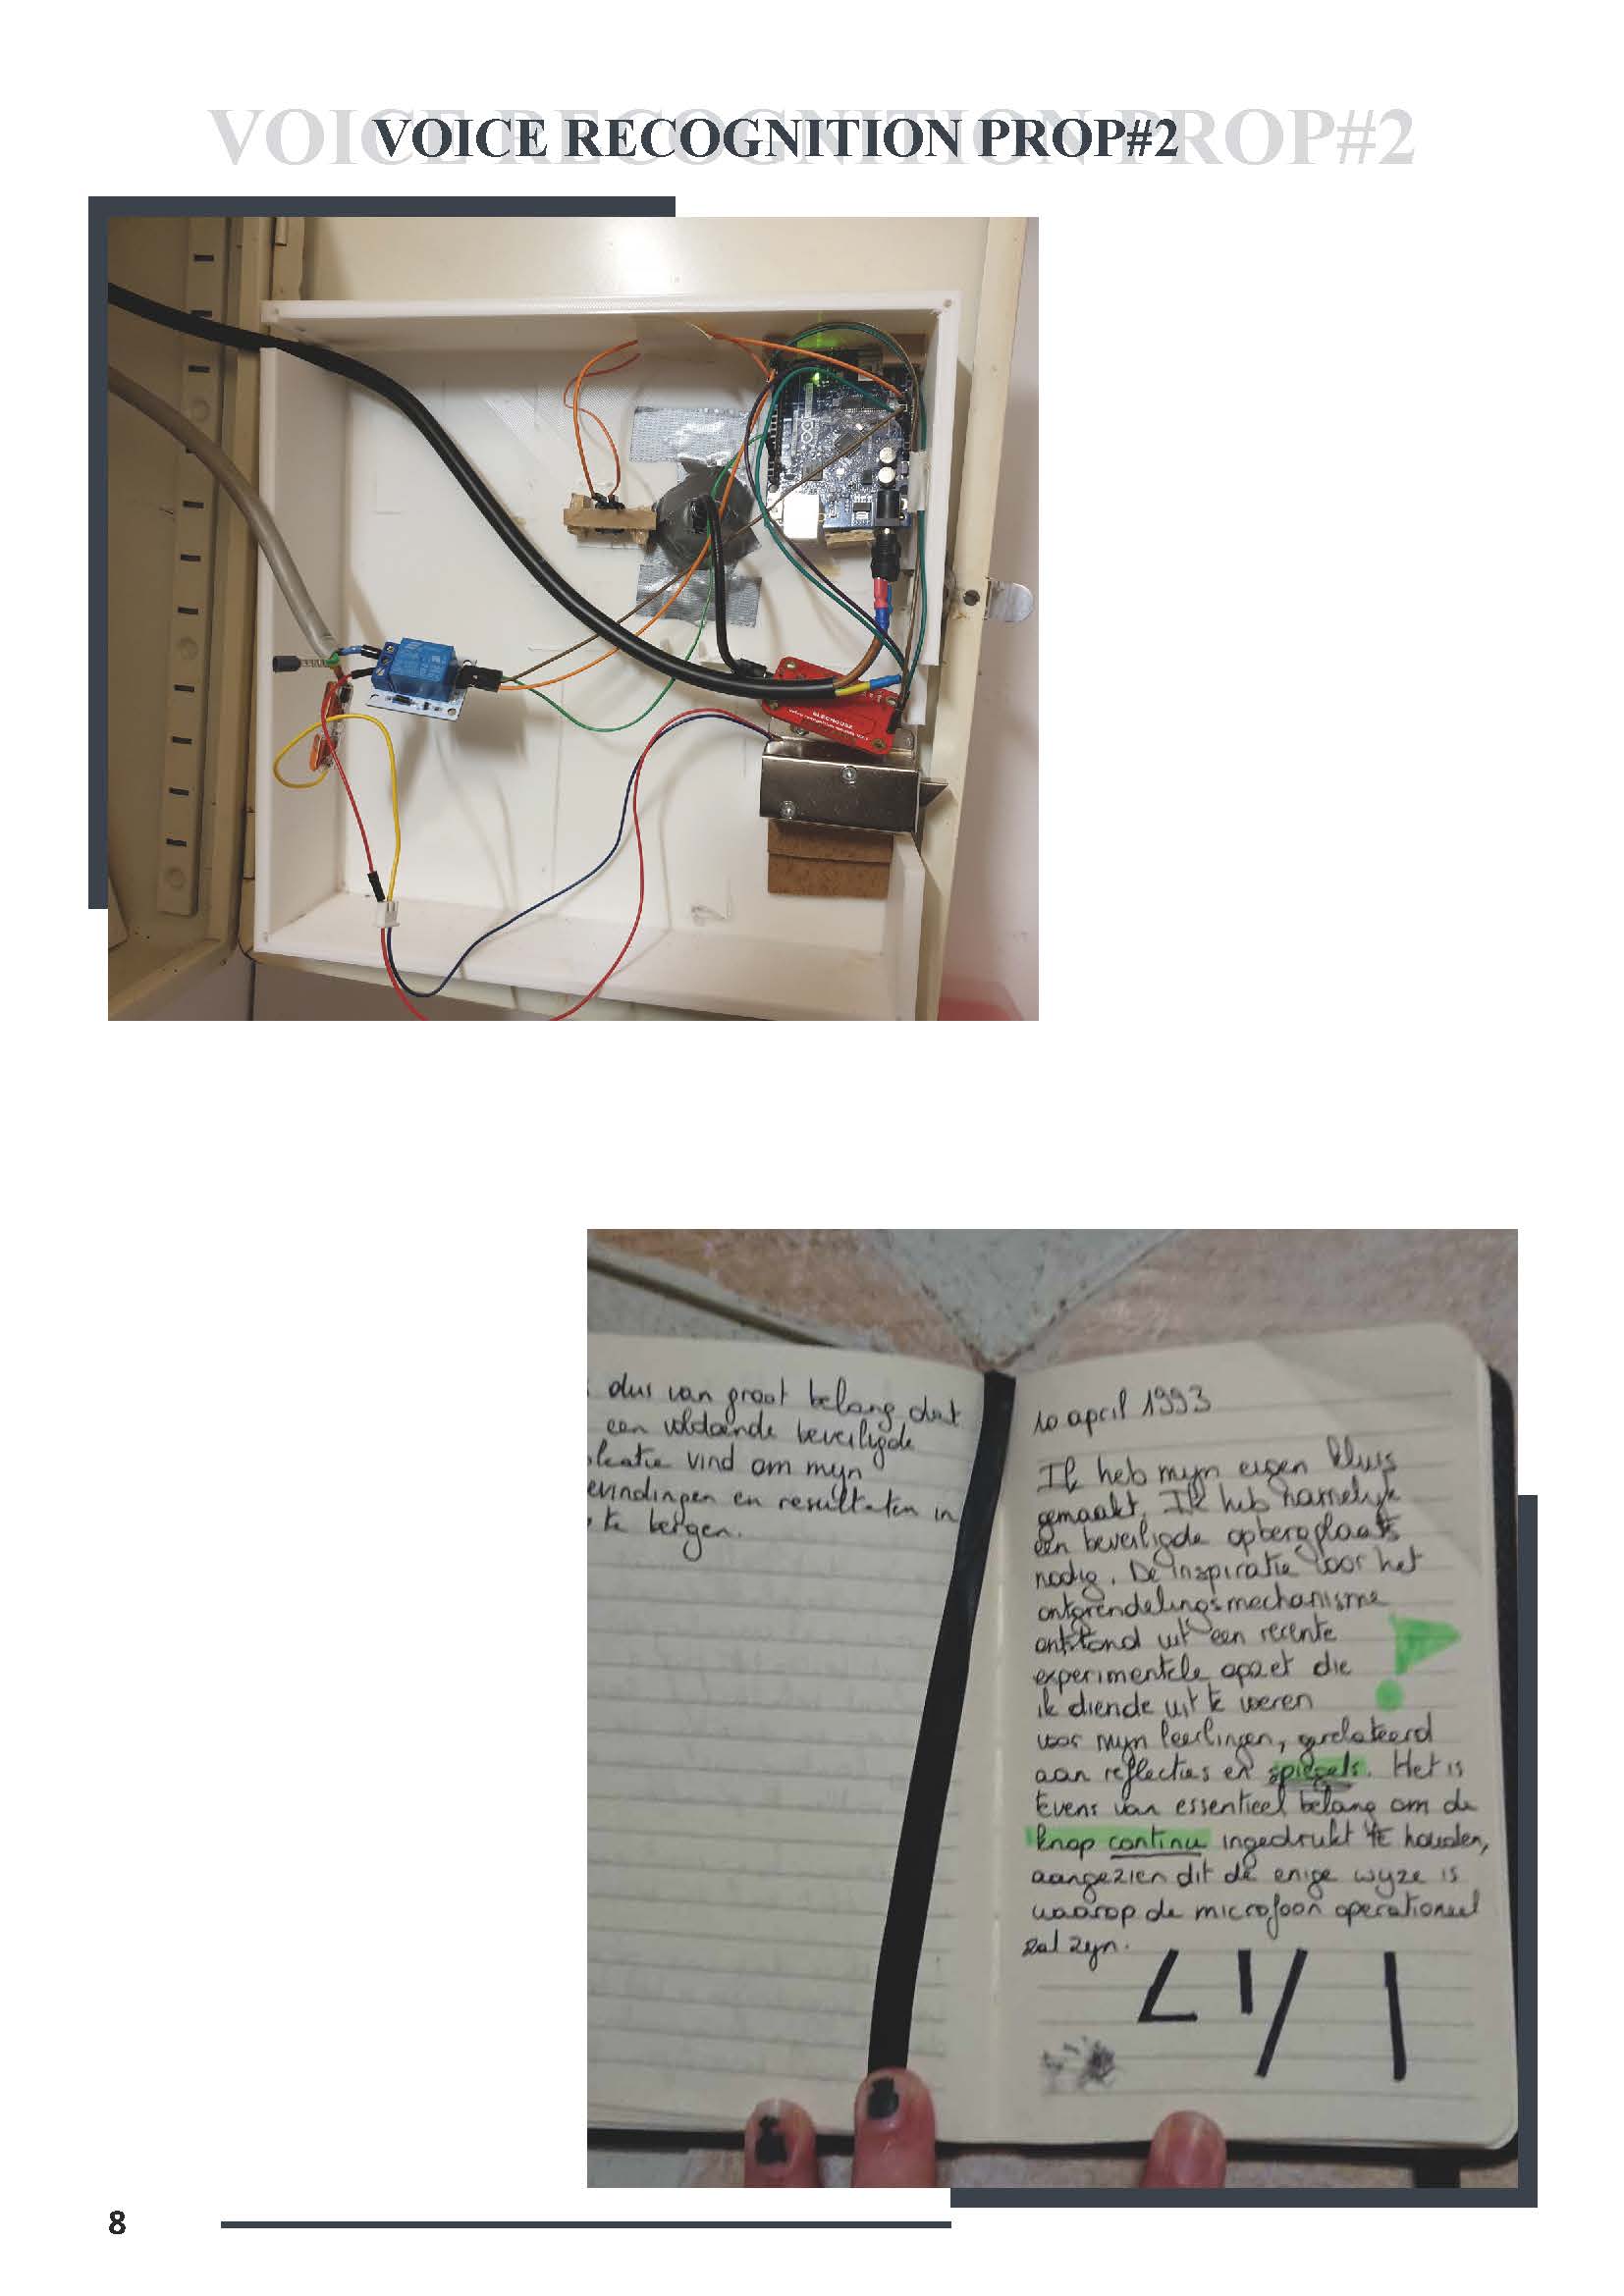 VOICE RECOGNITION PROP#2
VOICE RECOGNITION PROP#2
ELECHOUSE
dus van groot belang dat
een voldoende beveiligde
locatie vind om mijn
evindingen en resultaten in
te bergen.
10 april 1993
Ik heb mijn eigen kluis
gemaakt. Ik heb namelijk
een beveiligde opbergplaats
nodig. De inspiratie voor het
ontgrendelingsmechanisme
ontstond uit een recente
experimentele opzet die
ik diende uit te voeren
voor mijn leerlingen, gerelateerd
aan reflecties en spiegels. Het is
tevens van essentieel belang om de
knop continu ingedrukt te houden,
aangezien dit de enige wijze is
waarop de microfoon operationeel
zal zijn.
8